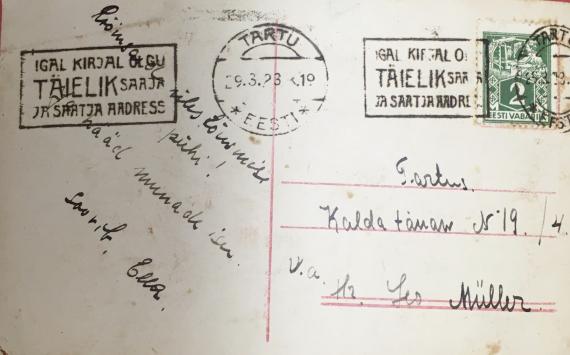 IGAL KIRJAL OLGU
TÄIELIK SAAJA
JA SAATJA AADRESS
TARTU
29.3.23 X.19
* EESTI *
IGAL KIRJAL O
TÄIELIK SAA
JA SAATJA AADRE
2
EESTI VABARIIK
Rõõmsa
ülestõusmise
pühi!
Hääd munade isu
Soovib, Ella.
Tartus.
Kalda tänaw N 19. / 4.
v.a.
Hr. Leo Müller.